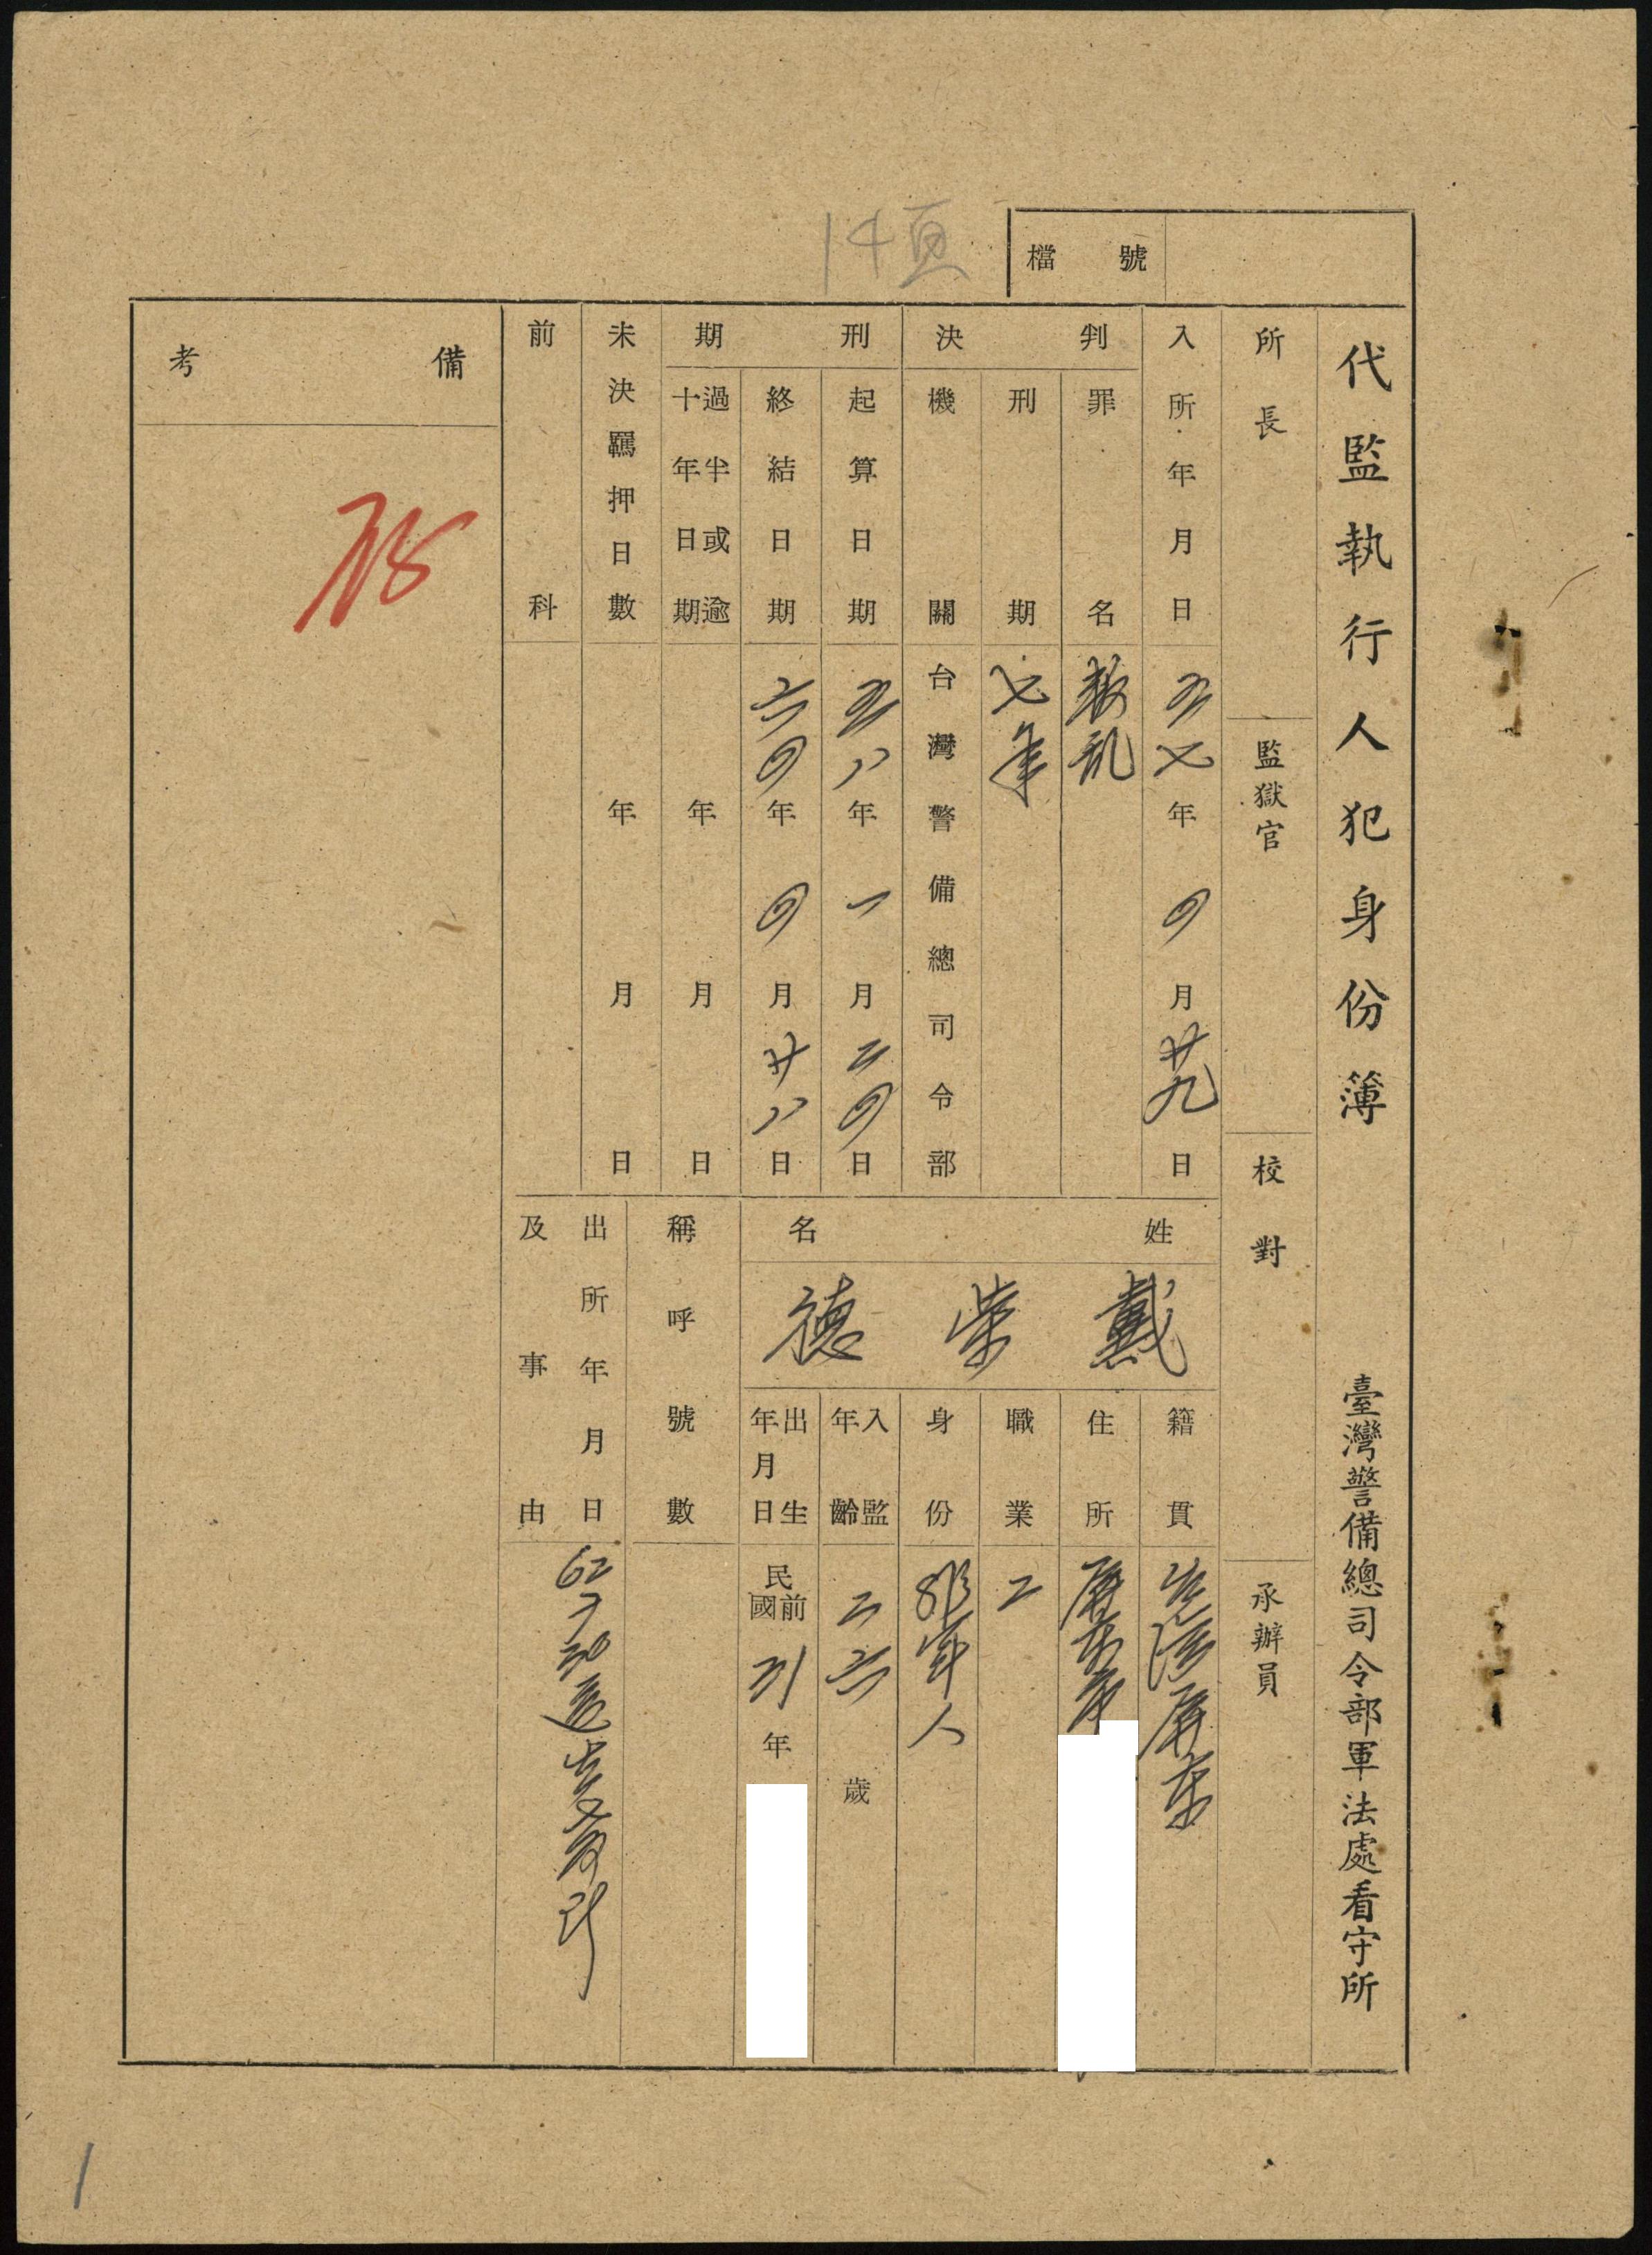 14頁
檔號
代監執行人犯身份簿 臺灣警備總司令部軍法處看守所
所長 監獄官 校對 承辦員
入所年月日 五七年四月廿九日
判決
罪名 叛亂
刑期 七年
機關 台灣警備總司令部
刑期
起算日期 五八年一月二四日
終結日期 六四年四月廿八日
過半或逾十年日期 年月日
未決羈押日數 年月日
前科
姓名
戴荣德
籍貫 台湾屏東
住所 屏東市
職業 工
身份 非軍人
入監年齡 二六歲
出生年月日 民國前 31年
稱呼號數
出所年月日及事由 62 7 30
備考
1